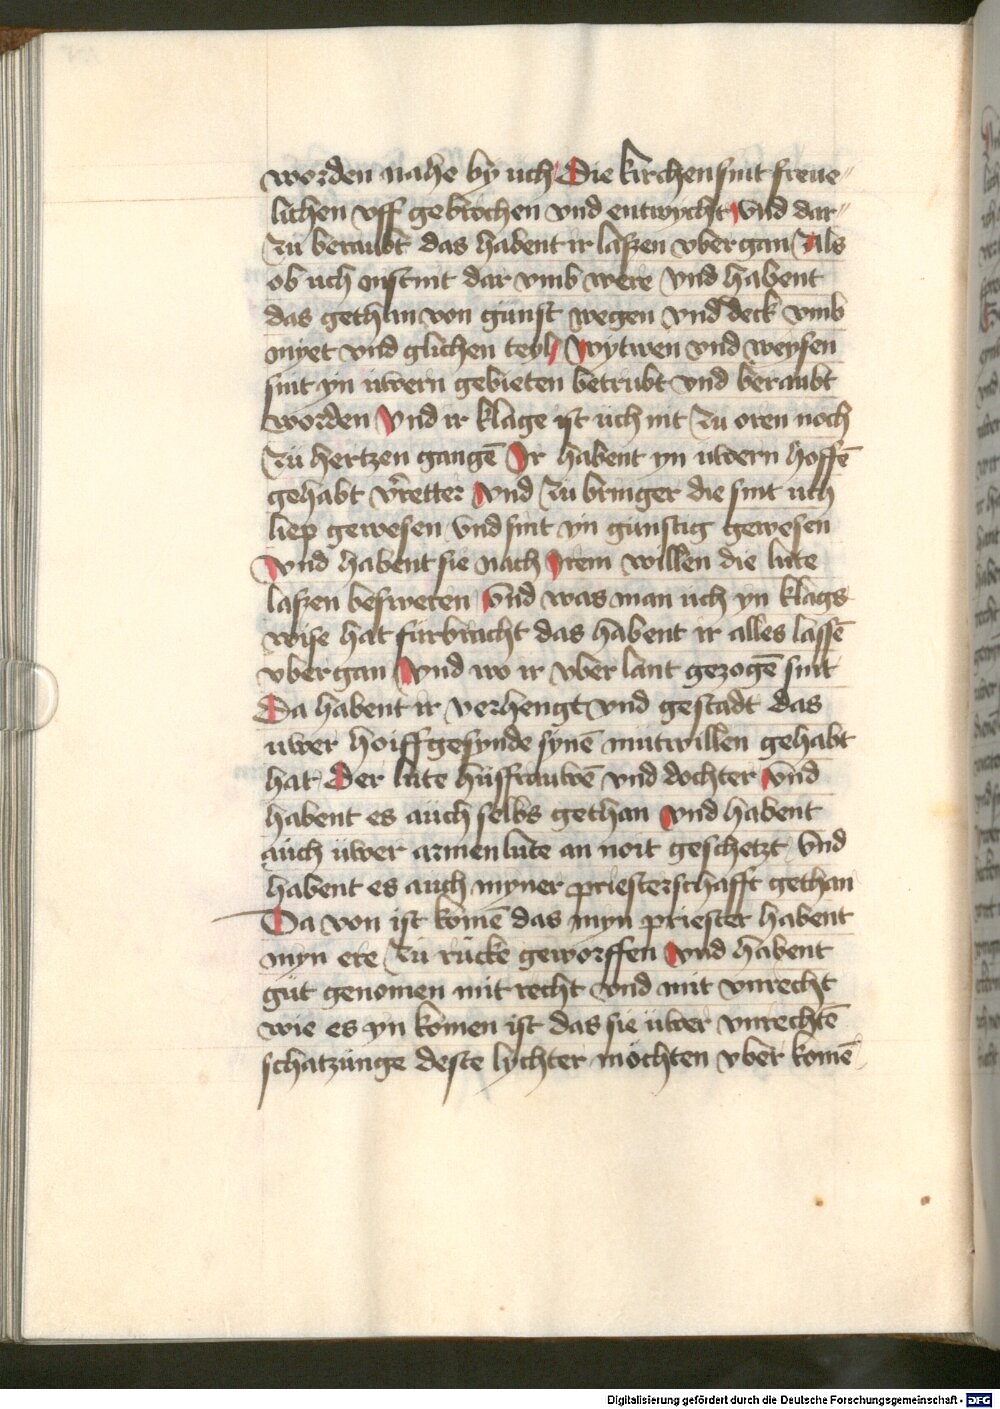 worden nahe by uch Die kirchen sint freue-
lichen vff gebrochen vnd entwycht vnd dar-
zu beraubt das habent ir laszen vbergan Als
ob uch onscint dar vmb were vnd habent
das gethan von gunst wegen vnd deck vmb
myet vnd glichen teyl wytwen vnd weysen
sint yn uwern gebieten betrubt vnd beraubt
worden vnd ir klage ist uch nit zu oren noch
zu hertzen gangē Ir habent yn uwern hoffē
gehabt v̄retter vnd zu bringer die sint uch
liep gewesen vnd sint yn gunstig gewesen
vnd habent sie nach irem willen die lute
laszen besweren vnd was man uch yn klags
wise hat furbracht das habent ir alles lassē
vbergan vnd wo ir vber lant gezogē sint
Da habent ir verhengt vnd gestadt das
uwer hoiffgesynde synē mutwillen gehabt
hat Der lute husfrauwē vnd dochter vnd
habent es auch selbs gethan vnd habent
auch uwer armen lute an noit geschetzt vnd
habent es auch myner priesterschafft gethan
Da von ist komē das myn priester habent
myn ere zu rucke geworffen vnd habent
gut genomen mit recht vnd mit vnrecht
wie es yn komen ist das sie uwer vnrechtē
schatzunge deste lychter mochten vber komē
Digitalisierung gefördert durch die Deutsche Forschungsgemeinschaft - DFG